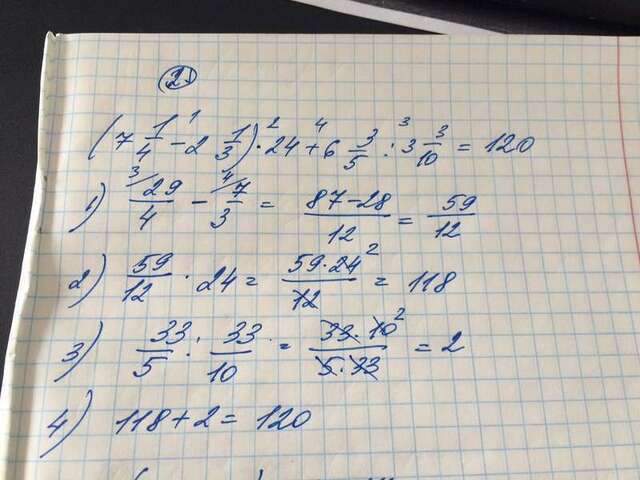 2)
(7 1/4 - 2 1/3) · 24 + 6 3/5 : 3 3/10 = 120
1) 29/4 - 7/3 = (87-28)/12 = 59/12
2) 59/12 · 24 = (59·24)/12 = 118
3) 33/5 : 33/10 = (33·10)/(5·33) = 2
4) 118 + 2 = 120